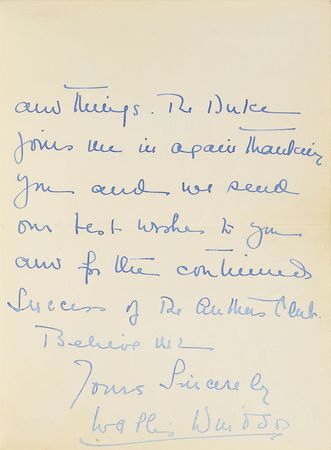 and things. The Duke
joins me in again thanking
you and we send
our best wishes to you
and for the continued
success of the Authors Club.
Believe me
Yours Sincerely
Wallis Windsor